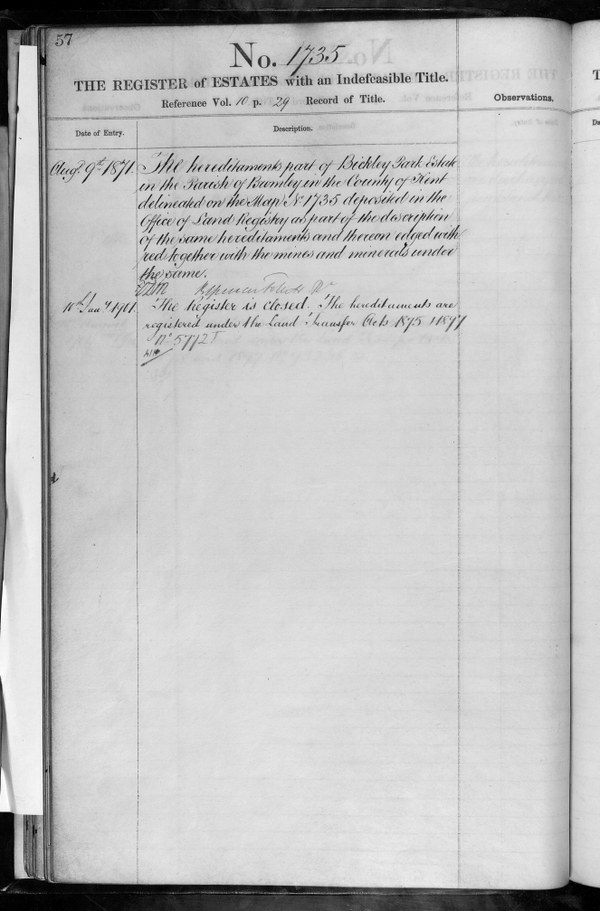 57
No. 1735
THE REGISTER of ESTATES with an Indefeasible Title.
Reference Vol. 10 p. 29 Record of Title.
Observations.
Date of Entry.
Description.
Augt. 9th 1871.
The hereditaments part of Bickley Park Estate
in the Parish of Bromley in the County of Kent
delineated on the Map No 1735 deposited in the
Office of Land Registry as part of the description
of the same hereditaments and thereon edged with
red together with the mines and minerals under
the same.
10th Jany 1901.
The Register is closed. The hereditaments are
registered under the Land Transfer Acts 1875 & 1897
No 5772